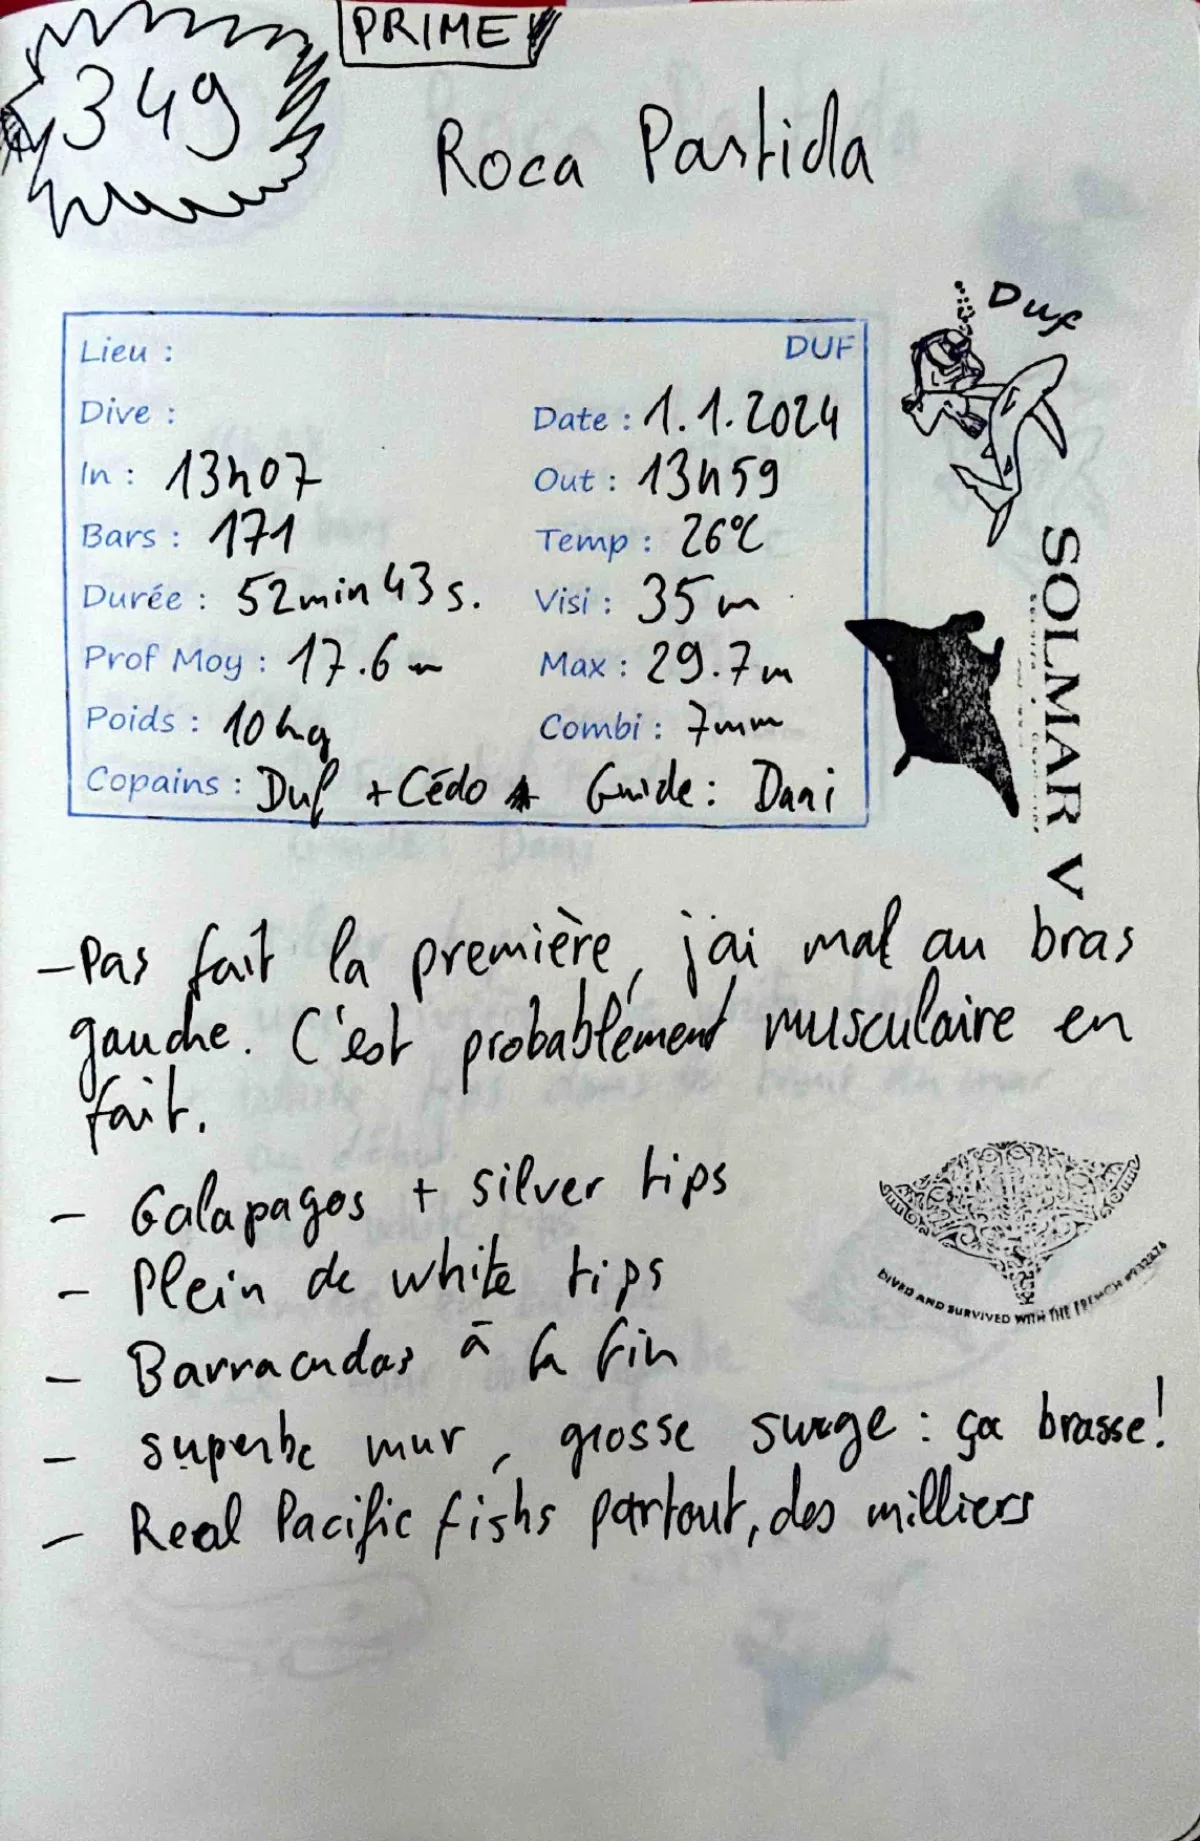 349
PRIME
Roca Partida
Duf
Lieu : DUF
Dive : Date : 1.1.2024
In : 13h07 Out : 13h59
Bars : 171 Temp : 26°C
Durée : 52min 43s. Visi : 35m
Prof Moy : 17.6m Max : 29.7m
Poids : 10kg Combi : 7mm
Copains : Duf + Cédo Guide : Dani
SOLMAR V
- Pas fait la première, j'ai mal au bras
gauche. C'est probablement musculaire en
fait.
- Galapagos + silver tips
- Plein de white tips
- Barracudas à la fin
- superbe mur, grosse surge : ça brasse!
- Real Pacific fishs partout, des milliers
DIVED AND SURVIVED WITH THE FRENCH